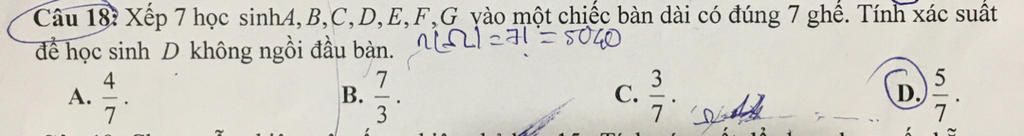 Câu 18: Xếp 7 học sinhA, B, C, D, E, F, G vào một chiếc bàn dài có đúng 7 ghế. Tính xác suất
để học sinh D không ngồi đầu bàn. n(Ω) = 7! = 5040
A. 4/7. B. 7/3. C. 3/7. D. 5/7.